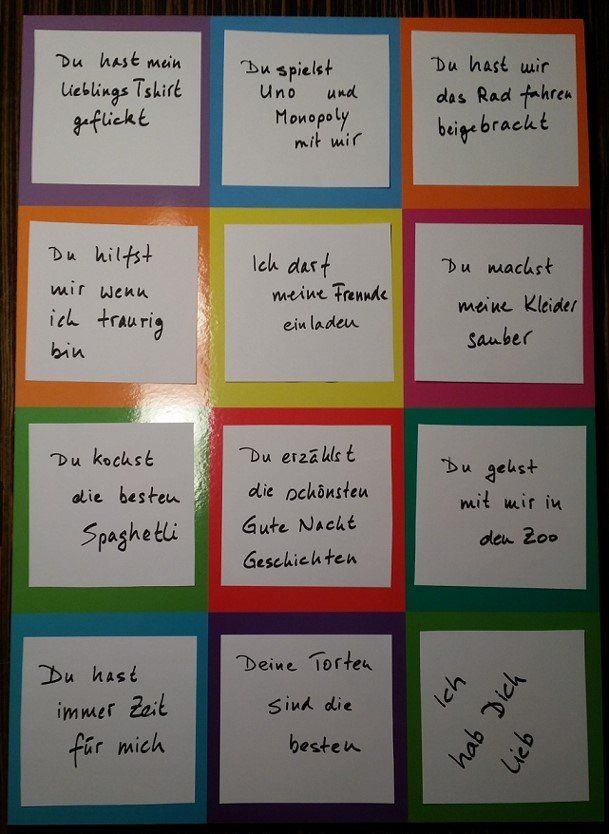 Du hast mein
Lieblings Tshirt
geflickt
Du spielst
Uno und
Monopoly
mit mir
Du hast mir
das Rad fahren
beigebracht
Du hilfst
mir wenn
ich traurig
bin
Ich darf
meine Freunde
einladen
Du machst
meine Kleider
sauber
Du kochst
die besten
Spaghetti
Du erzählst
die schönsten
Gute Nacht
Geschichten
Du gehst
mit mir in
den Zoo
Du hast
immer Zeit
für mich
Deine Torten
sind die
besten
Ich
hab Dich
lieb